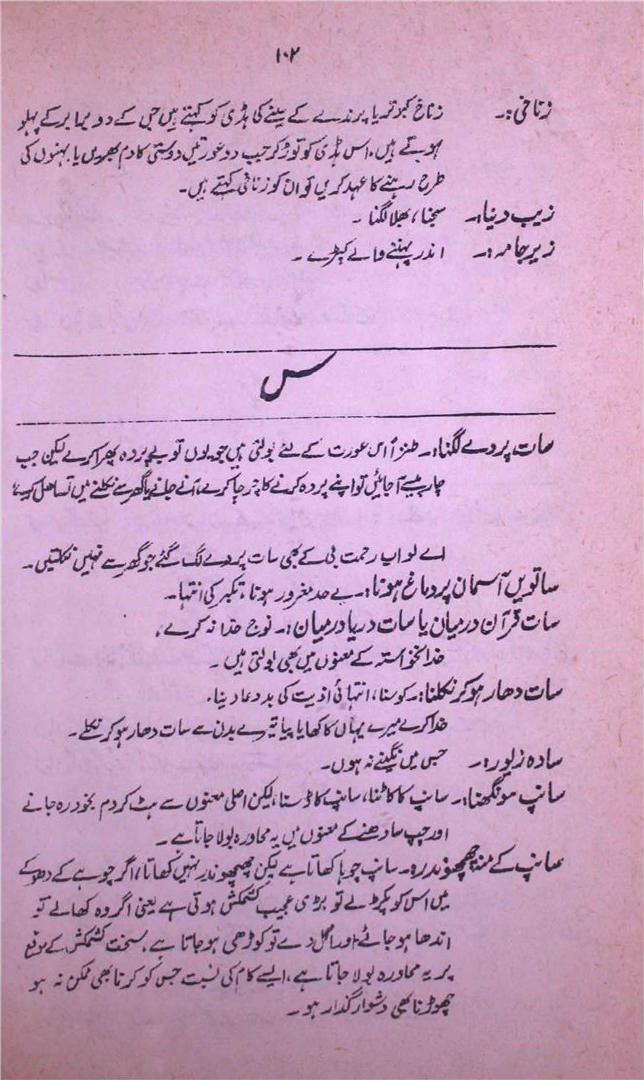 ۱۰۲
زناخی:۔ زناخ کبوتر یا پرندے کے سینے کی ہڈی کو کہتے ہیں جس کے دو برابر کے پہلو
ہوتے ہیں، اس ہڈی کو توڑ کر جب دو عورتیں دوستی کا دم بھریں یا بہنوں کی
طرح رہنے کا عہد کریں تو ان کو زناخی کہتے ہیں۔
زیب دینا:۔ سجنا، بھلا لگنا۔
زیر جامہ:۔ اندر پہننے والے کپڑے۔
س
سات پردے لگنا:۔ طنزاً اس عورت کے لئے بولتی ہیں جو یوں تو بے پردہ پھرا کرے لیکن جب
چار پیسے آجائیں تو اپنے پردہ کرنے کا چرچا کرے، آنے جانے یا گھر سے نکلنے میں تساہل کرے
اے لو اب رحمت بی کے بھی سات پردے لگ گئے جو گھر سے نہیں نکلتیں۔
ساتویں آسمان پر دماغ ہونا:۔ بے حد مغرور ہونا، تکبر کی انتہا۔
سات قرآن درمیان یا سات دریا درمیان:۔ نوج خدا نہ کرے،
خدانخواستہ کے معنوں میں بھی بولتی ہیں۔
سات دھار ہو کر نکلنا:۔ کوسنا، انتہائی اذیت کی بددعا دینا،
خدا کرے میرے یہاں کا کھایا پیا تیرے بدن سے سات دھار ہو کر نکلے۔
سادہ زیور:۔ جس میں نگینے نہ ہوں۔
سانپ سونگھنا:۔ سانپ کا کاٹنا، سانپ کا ڈسنا، لیکن اصلی معنوں سے ہٹ کر دم بخود رہ جانے
اور چپ سادھنے کے معنوں میں یہ محاورہ بولا جاتا ہے۔
سانپ کے منہ چھچھوندر:۔ سانپ چوہا کھاتا ہے لیکن چھچھوندر نہیں کھاتا، اگر چوہے کے دھوکے
میں اس کو پکڑ لے تو بڑی عجیب کشمکش ہوتی ہے یعنی اگر وہ کھالے تو
اندھا ہو جائے اور اگل دے تو کوڑھی ہو جاتا ہے، سخت کشمکش کے موقع
پر یہ محاورہ بولا جاتا ہے، ایسے کام کی نسبت جس کو کرنا بھی ممکن نہ ہو
چھوڑنا بھی دشوار گذار ہو۔